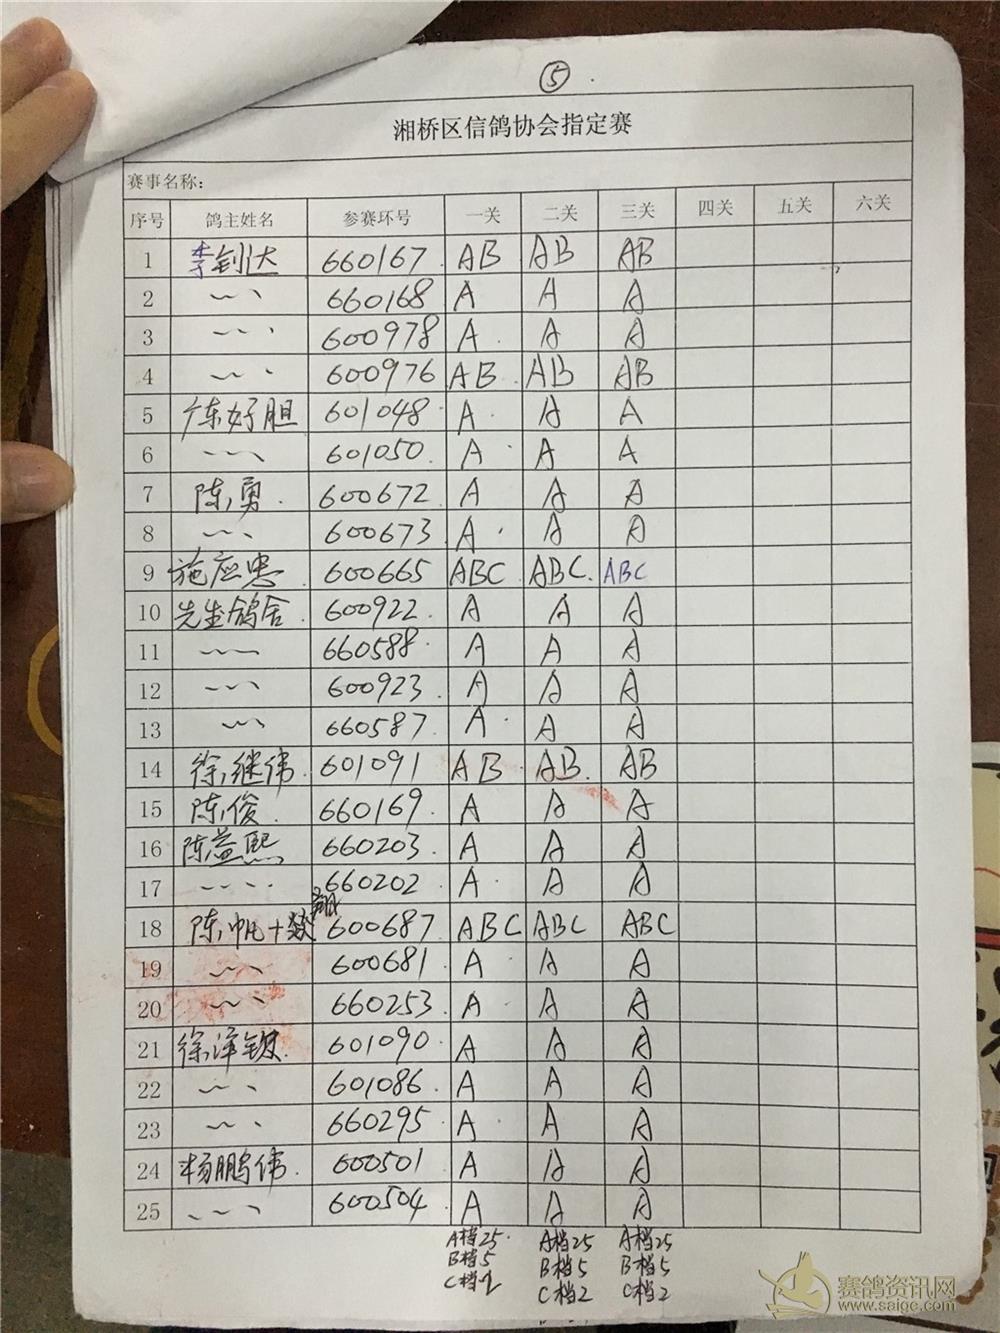 ⑤
湘桥区信鸽协会指定赛
赛事名称：
序号 鸽主姓名 参赛环号 一关 二关 三关 四关 五关 六关
1 李钊达 660167 AB AB AB
2 660168 A A A
3 600978 A A A
4 600976 AB AB AB
5 陈好胆 601048 A A A
6 601050 A A A
7 陈勇 600672 A A A
8 600673 A A A
9 施应忠 600665 ABC ABC ABC
10 先生鸽舍 600922 A A A
11 660588 A A A
12 600923 A A A
13 660587 A A A
14 徐继伟 601091 AB AB AB
15 陈俊 660169 A A A
16 陈益熙 660203 A A A
17 660202 A A A
18 陈帆+ 600687 ABC ABC ABC
19 600681 A A A
20 660253 A A A
21 徐泽 601090 A A A
22 601086 A A A
23 660295 A A A
24 杨鹏伟 600501 A A A
25 600504 A A A
A档25 A档25 A档25
B档5 B档5 B档5
C档2 C档2 C档2
赛鸽资讯网
www.saige.com